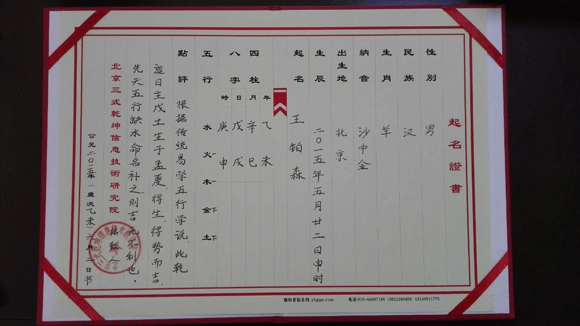 起名證書
性别 男
民族 汉
生肖 羊
納音 沙中金
出生地 北京
生辰 二〇一五年五月廿二日申时
起名 王铂森
四柱 年 月 日 時
八字 乙未 辛巳 戊戌 庚申
五行 水 火 木 金 土
點評 根据传统易学五行学说,此乾
造日主戊土生于孟夏得生、得势而吉,
先天五行缺水命名补之则吉
北京三式乾坤信息技術研究院
公元二〇一五年(歲次乙未)六月